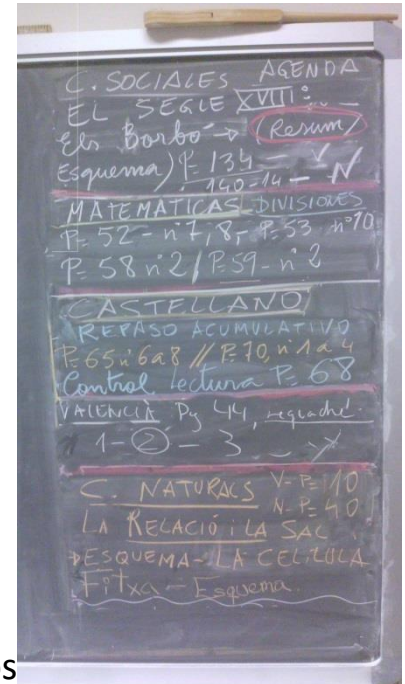 C. SOCIALES AGENDA
EL SEGLE XVIII:
Els Borbó → (Resum)
Esquema) P= 134 - V
140-14 - N
MATEMATICAS DIVISIONES
P= 52 - nº 7, 8, - P= 53 nº 10
P= 58 nº 2 / P= 59 - nº 2
CASTELLANO
REPASO ACUMULATIVO
P= 65 nº 6 a 8 // P= 70, nº 1 a 4
Control lectura P= 68
VALENCIÀ Pg 44,
1 - 2 - 3
C. NATURALS V- P= 10
N- P= 40
LA RELACIÓ i LA SAL
ESQUEMA - LA CEL·LULA
Fitxa - Esquema.
os